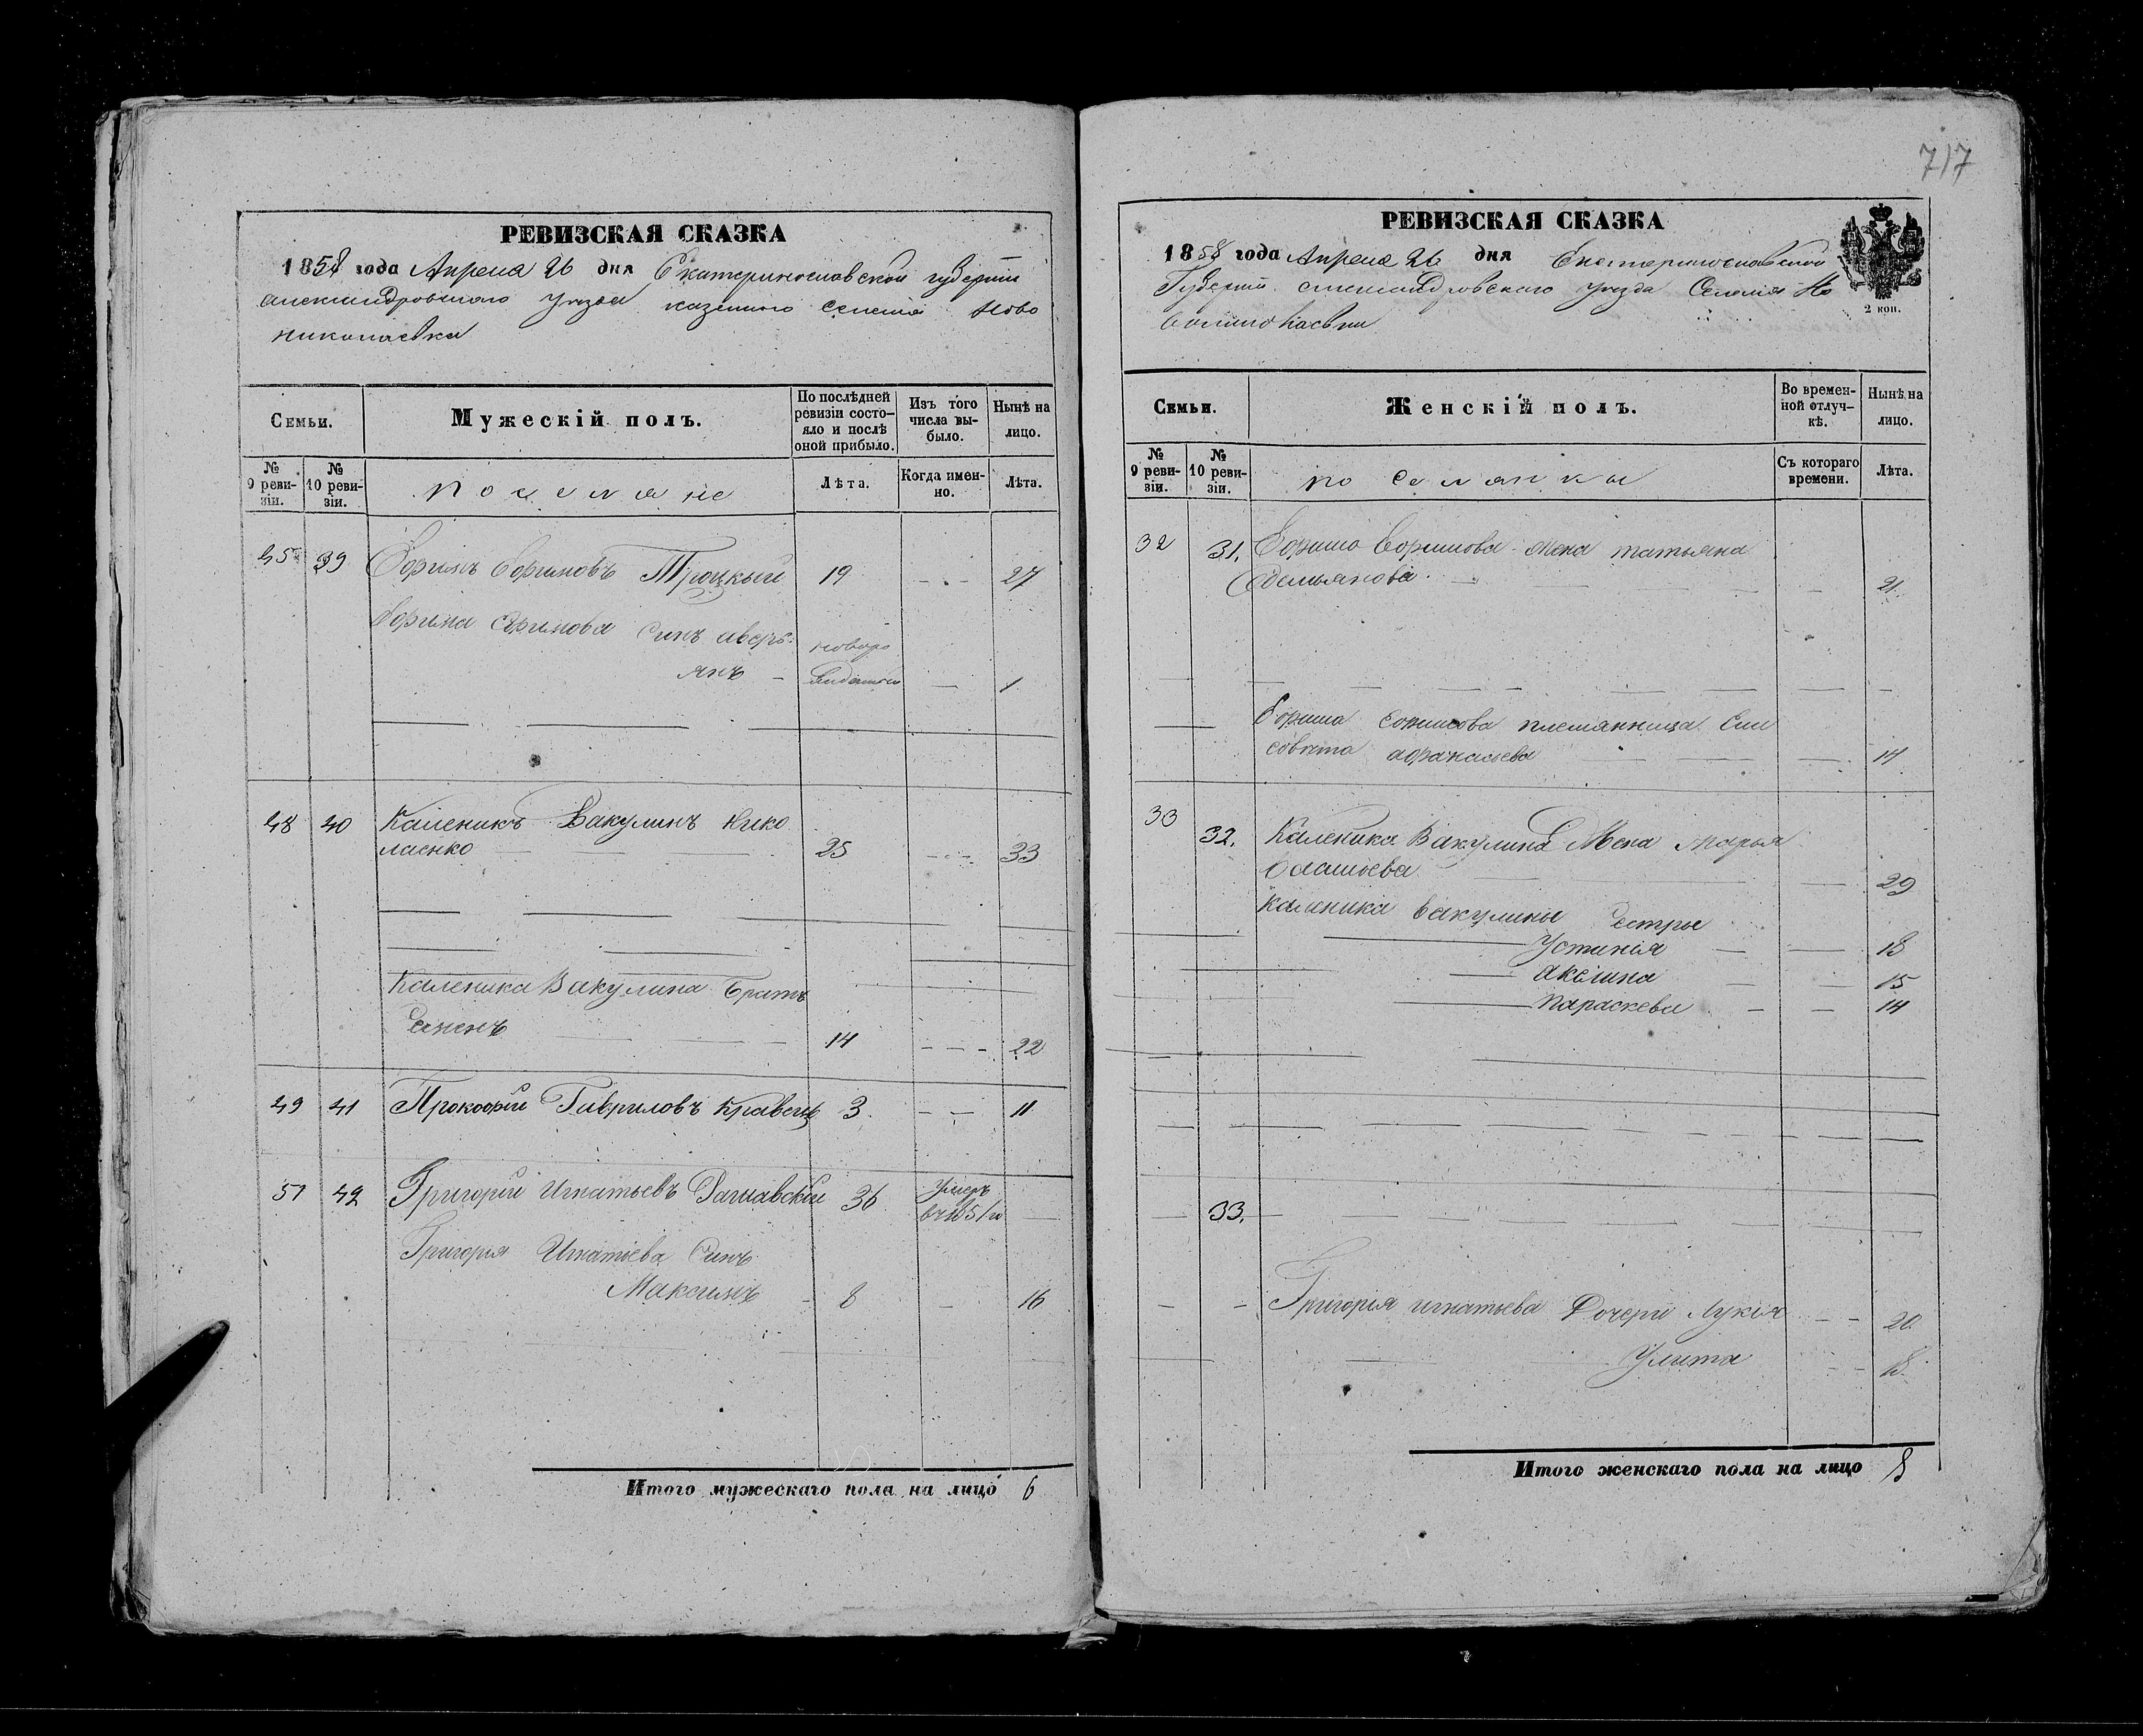 717
РЕВИЗСКАЯ СКАЗКА
1858 года Апреля 26 дня Екатеринославской губернии
александровскаго уезда казенного селения Ново
николаевка
Семьи.
Мужескій полъ.
По послѣдней ревизіи состояло и послѣ оной прибыло.
Изъ того числа выбыло.
Нынѣ на лицо.
№ 9 ревизіи.
№ 10 ревизіи.
поселяне
Лѣта.
Когда именно.
Лѣта.
45 39 Ефимъ Ефимовъ Троцкый 19 27
Ефима Ефимова Синъ аверь-
янъ 1
48 40 Каленикъ Вакулинъ Нико
лаенко 25 33
Каленика Вакулина братъ
14 22
49 41 Прокофій Гавриловъ Кравецъ 3 11
51 42 Григорій Игнатьевъ 36 Умеръ
в 1851 г
Григорія Игнатіева Синъ
Максимъ 8 16
Итого мужескаго пола на лицо 6
РЕВИЗСКАЯ СКАЗКА
1858 года Апреля 26 дня Екатеринославской
Губернии александровскаго уезда Селения Но
2 коп.
Семьи.
Женскій полъ.
Во временной отлучкѣ.
Нынѣ на лицо.
№ 9 ревизіи.
№ 10 ревизіи.
поселянки
Съ котораго времени.
Лѣта.
32 31. Ефима Ефимова жена татьяна
Емельянова 21
Ефима Ефимова племянница Ели
савета афанасьева 14
33 32. Каленика Вакулина Жена Марья
29
Каленика Вакулины Сестры
Устинія 18
Акилина 15
Параскева 14
33.
Григорія игнатьева Дочери Лукія 20
Улита 18
Итого женскаго пола на лицо 8